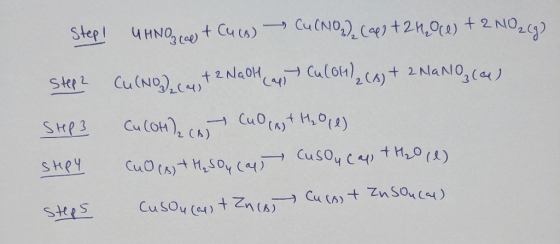 Step1 4HNO₃(aq) + Cu(s) → Cu(NO₃)₂(aq) + 2H₂O(l) + 2NO₂(g)
Step2 Cu(NO₃)₂(aq) + 2NaOH(aq) → Cu(OH)₂(s) + 2NaNO₃(aq)
Step3 Cu(OH)₂(s) → CuO(s) + H₂O(l)
Step4 CuO(s) + H₂SO₄(aq) → CuSO₄(aq) + H₂O(l)
Step5 CuSO₄(aq) + Zn(s) → Cu(s) + ZnSO₄(aq)